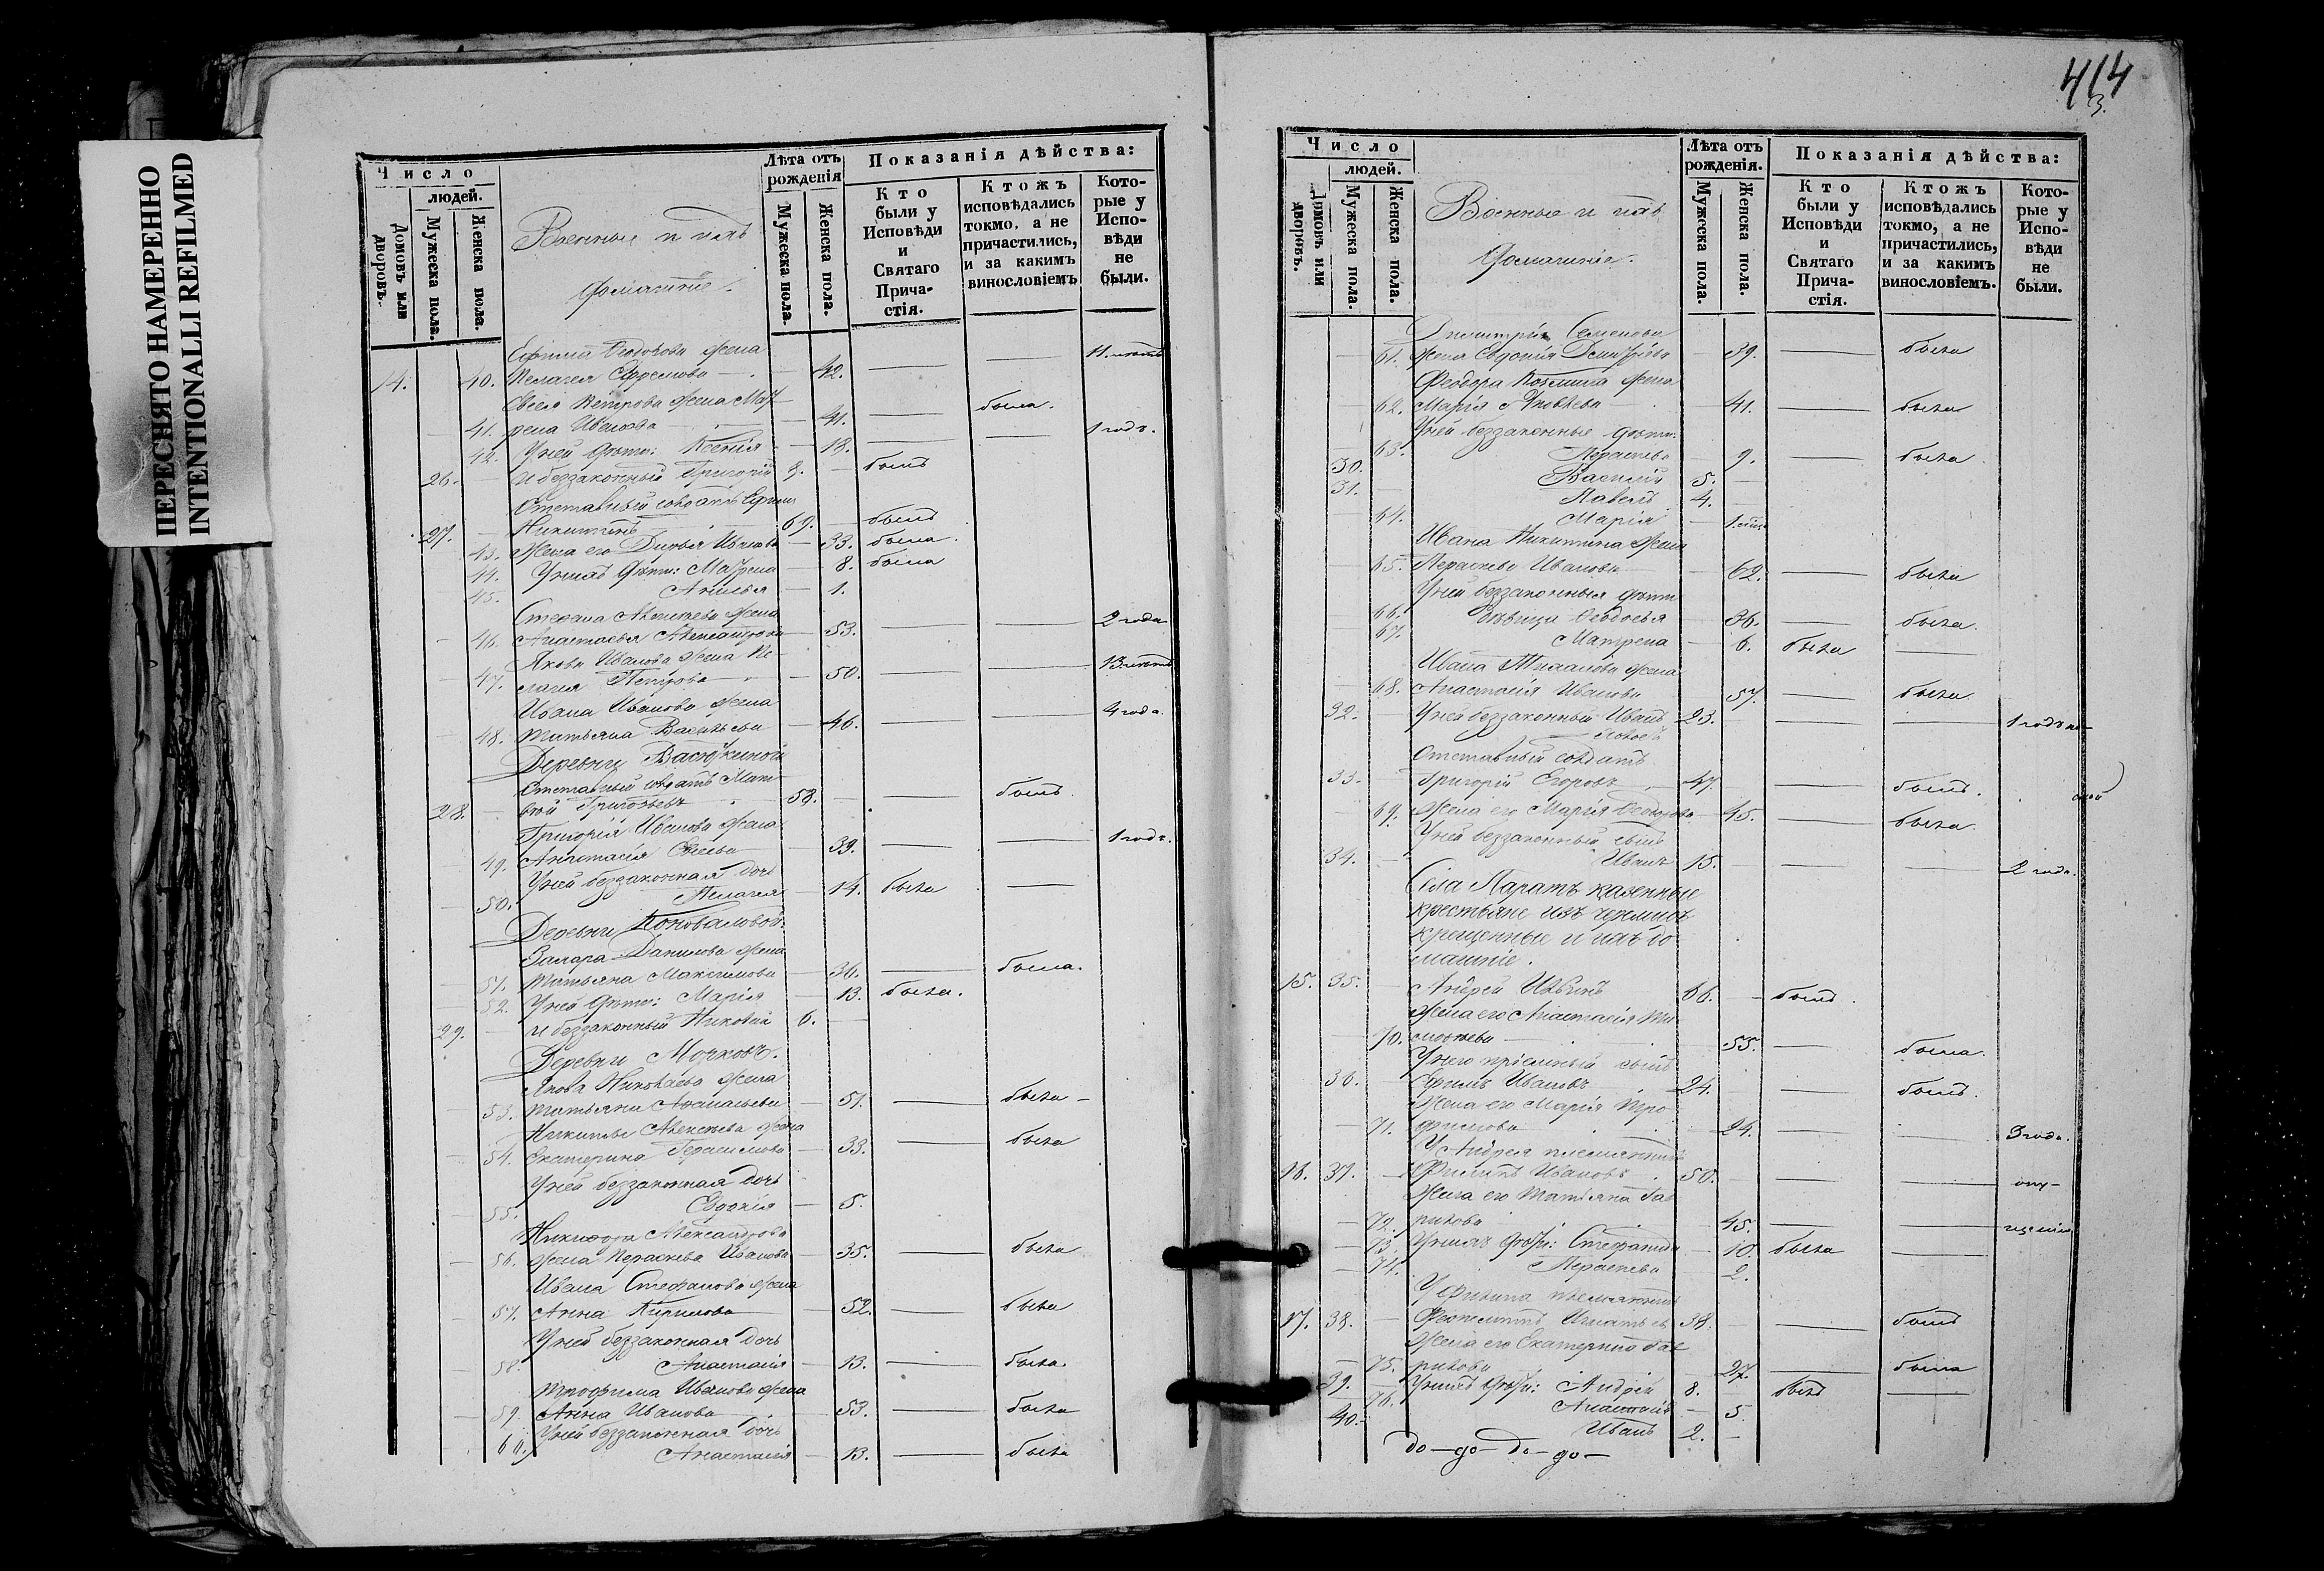 ПЕРЕСНЯТО НАМЕРЕННО
INTENTIONALLI REFILMED
Число
людей.
Домовъ или дворовъ.
Мужеска пола.
Женска пола.
Военные и ихъ
домашніе.
Лѣта отъ рожденія
Мужеска пола.
Женска пола.
Показанія дѣйства:
Кто были у Исповѣди и Святаго Прича-стія.
Ктожъ исповѣдались токмо, а не причастились, и за какимъ винословіемъ
Кото-рые у Испо-вѣди не были.
Ефима Ѳеодорова жена
14. 40. Пелагея Ефремова 42. 11. лѣтъ
Евсея Петрова жена Мат
41. рена Иванова 41. была.
42. У ней дѣти: Ксенія 18. 1 годъ.
26. и беззаконный Григорій 9. былъ
Отставный солдатъ Ефимъ
27. Никитинъ 69. былъ
43. Жена его Дарья Иванова 33. была.
44. У нихъ дѣти: Матрена 8. была
45. 1.
Стефана Алексѣева жена
46. Анастасья Александрова 53. 2 года
Якова Иванова жена Пе-
47. лагея Петрова 50. 13 лѣтъ
Ивана Иванова жена
48. Татьяна Васильева 46. 4 года.
Деревни Васюткиной
Отставный солдатъ Мат-
28. вѣй Григорьевъ 58. былъ.
Григорія Иванова жена
49. Анастасія Евсева 39. 1 годъ.
У ней беззаконная дочь
50. Пелагея 14. была
Деревни Коноваловой
Захара Данилова жена
51. Татьяна Максимова 36. была.
52. У ней дѣти: Марія 13. была.
29. и беззаконный Николай 6.
Деревни Мочковъ.
Якова Николаева жена
53. Татьяна Ананьева 51. была
Никиты Алексѣева жена
54. Екатерина Герасимова 33. была
У ней беззаконная дочь
55. Евдокія 5.
Никифора Александрова
56. жена Параскева Иванова 35. была
Ивана Стефанова жена
57. Анна Кирилова 52. была
У ней беззаконная дочь
58. Анастасія 13. была.
Трофима Иванова жена
59. Анна Иванова 53. была
60. У ней беззаконная дочь
Анастасія 13. была
414
3.
Число
людей.
Домовъ или дворовъ.
Мужеска пола.
Женска пола.
Военные и ихъ
домашніе.
Лѣта отъ рожденія.
Мужеска пола.
Женска пола.
Показанія дѣйства:
Кто были у Исповѣди и Святаго Прича-стія.
Ктожъ исповѣдались токмо, а не причастились, и за какимъ винословіемъ.
Кото-рые у Испо-вѣди не были.
Димитрія Семенова
61. жена Евдокія Димитріева 39. была
Феодора Козмина жена
62. Марія Яковлева 41. была
У ней беззаконные дѣти:
63. Параскева 9. была
30. Василій 5.
31. Павелъ 4.
64. Марія
Ивана Никитина жена
65. Параскева Иванова 62. была
У ней беззаконныя дѣти
66. дѣвица Ѳеодосья 36. была.
67. Матрена 6. была
Ивана жена
68. Анастасія Иванова 57. была
32. У ней беззаконный Иванъ 23. 1 годъ
Отставный солдатъ
33. Григорій Егоровъ 47. былъ.
69. Жена его Марія Ѳеодорова 45. была.
У ней беззаконный сынъ
34. Иванъ 15. 2 года.
Села Паратъ казенные
крестьяне изъ черемисъ
крещенные и ихъ до
машніе.
15. 35. Андрей 66. былъ.
Жена его Анастасія Ти
70. моѳеева 55. была.
У него пріемный сынъ
36. Ефимъ Ивановъ 24. былъ.
Жена его Марія Тро
71. фимова 24. 3 года.
У Андрея племянникъ
16. 37. Филипъ Ивановъ 50. опу-
Жена его Татьяна Гав
72. рилова 45. щенію
73. У нихъ дѣти: Стефанида 10. была
74. Параскева 2.
У Филипа племянникъ
17. 38. Феоктистъ Игнатьевъ 38. былъ
Жена его Екатерина Гав
75. рилова 27. была
39. У нихъ дѣти: Андрей 8. былъ
76. Анастасія 5.
40. Иванъ 2.